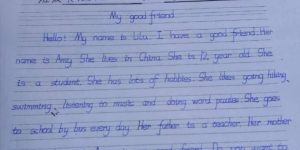 My good friend
Hello! My name is Lulu. I have a good friend. Her
name is Amy. She lives in China. She is 12 year old. She
is a student. She has lots of hobbies. She likes going hiking,
swimming, listening to music and doing word puzzles. She goes
to school by bus every day. Her father is a teacher. Her mother